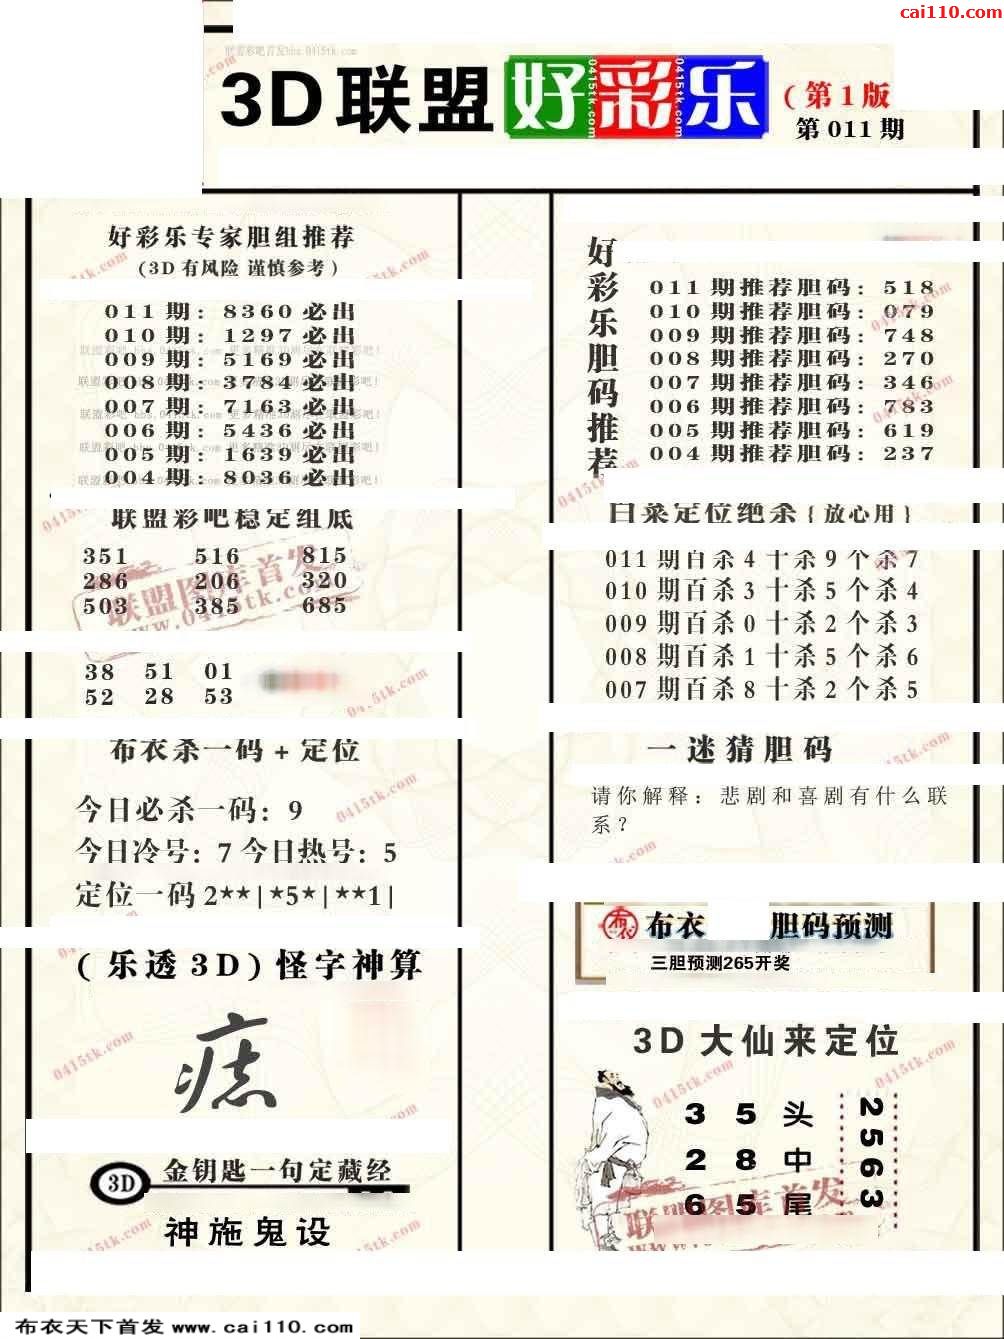 cai110.com
联盟彩吧首发bbs.0415tk.com
3D联盟 好彩乐 (第1版
第011期
好彩乐专家胆组推荐
(3D有风险 谨慎参考)
011期: 8360必出
010期: 1297必出
009期: 5169必出
008期: 3784必出
007期: 7163必出
006期: 5436必出
005期: 1639必出
004期: 8036必出
联盟彩吧稳定组底
351 516 815
286 206 320
503 385 685
联盟图库首发
www.0415tk.com
38 51 01
52 28 53
布衣杀一码+定位
今日必杀一码: 9
今日冷号: 7 今日热号: 5
定位一码 2**|*5*|**1|
(乐透3D)怪字神算
痣
3D 金钥匙一句定藏经
神施鬼设
好彩乐胆码推荐
011期推荐胆码: 518
010期推荐胆码: 079
009期推荐胆码: 748
008期推荐胆码: 270
007期推荐胆码: 346
006期推荐胆码: 783
005期推荐胆码: 619
004期推荐胆码: 237
白菜定位绝杀{放心用}
011期百杀4十杀9个杀7
010期百杀3十杀5个杀4
009期百杀0十杀2个杀3
008期百杀1十杀5个杀6
007期百杀8十杀2个杀5
一迷猜胆码
请你解释: 悲剧和喜剧有什么联
系?
布衣 布衣 胆码预测
三胆预测265开奖
3D大仙来定位
3 5 头
2 8 中
6 5 尾
2563
联盟图库首发
0415tk.com
布衣天下首发 www.cai110.com